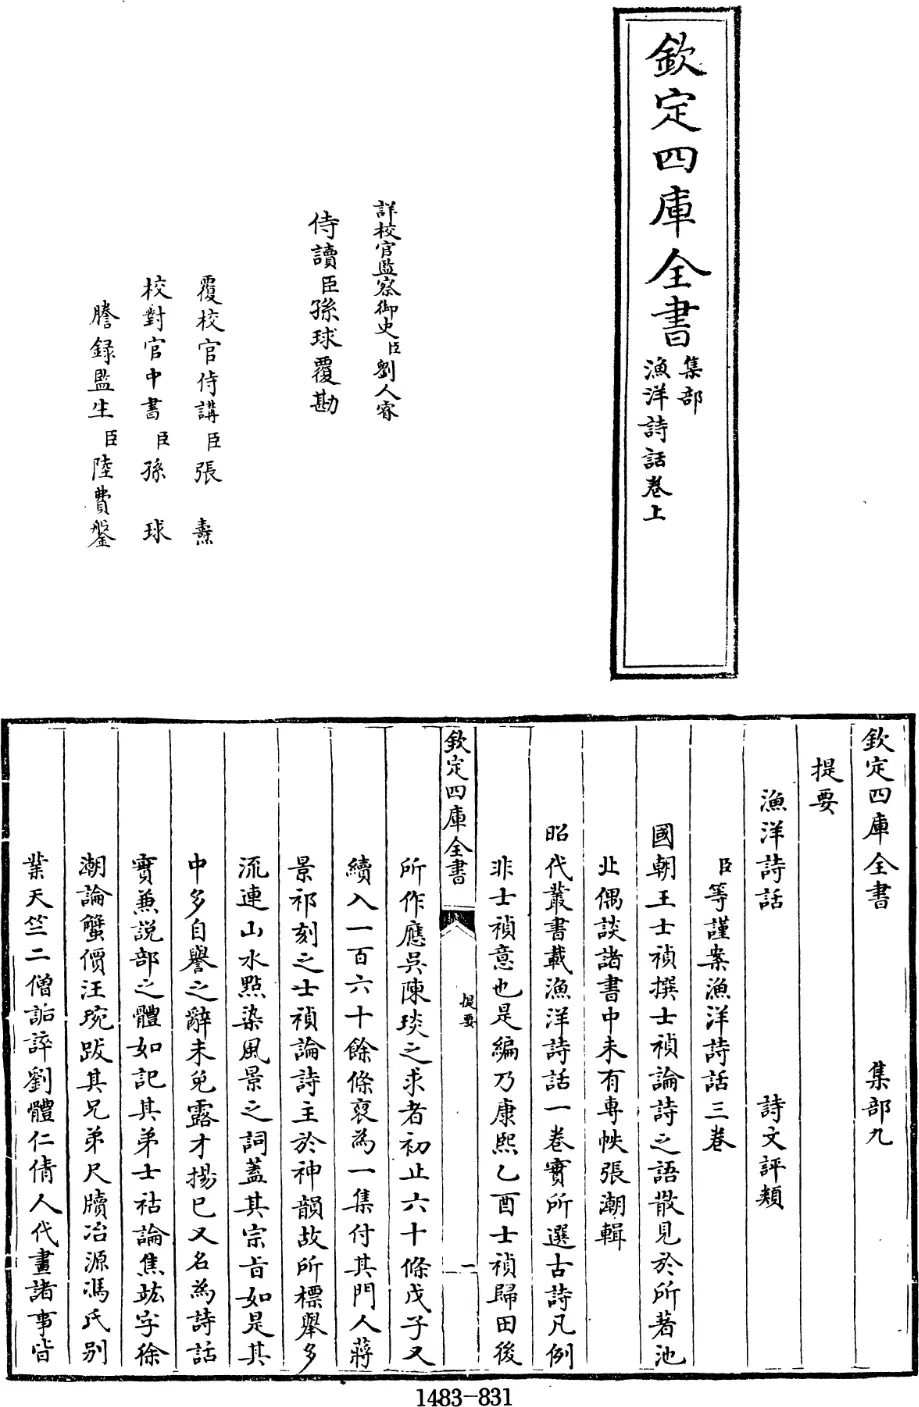 欽定四庫全書
集部
漁洋詩話卷上
詳校官監察御史臣劉人睿
侍讀臣孫球覆勘
覆校官侍講臣張燾
校對官中書臣孫球
謄録監生臣陸費鎜
欽定四庫全書 集部九
提要
漁洋詩話 詩文評類
臣等謹案漁洋詩話三卷
國朝王士禎撰士禎論詩之語散見於所著池
北偶談諸書中未有專帙張潮輯
昭代叢書載漁洋詩話一卷實所選古詩凡例
非士禎意也是編乃康熙乙酉士禎歸田後
欽定四庫全書 提要 一
所作應吳陳琰之求者初止六十條戊子又
續入一百六十餘條裒為一集付其門人蔣
景祁刻之士禎論詩主於神韻故所標舉多
流連山水點染風景之詞蓋其宗旨如是其
中多自譽之辭未免露才揚已又名為詩話
實兼説部之體如記其弟士祜論焦竑字徐
潮論蟹價汪琬跋其兄弟尺牘冶源馮氏别
業天竺二僧詬誶劉體仁倩人代畫諸事皆
1483-831